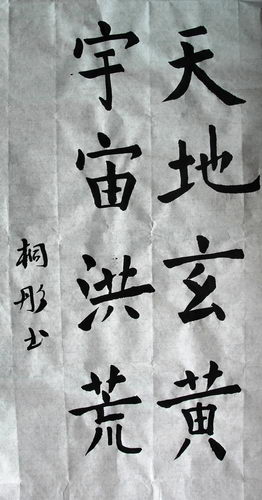 天地玄黄
宇宙洪荒
桐彤书